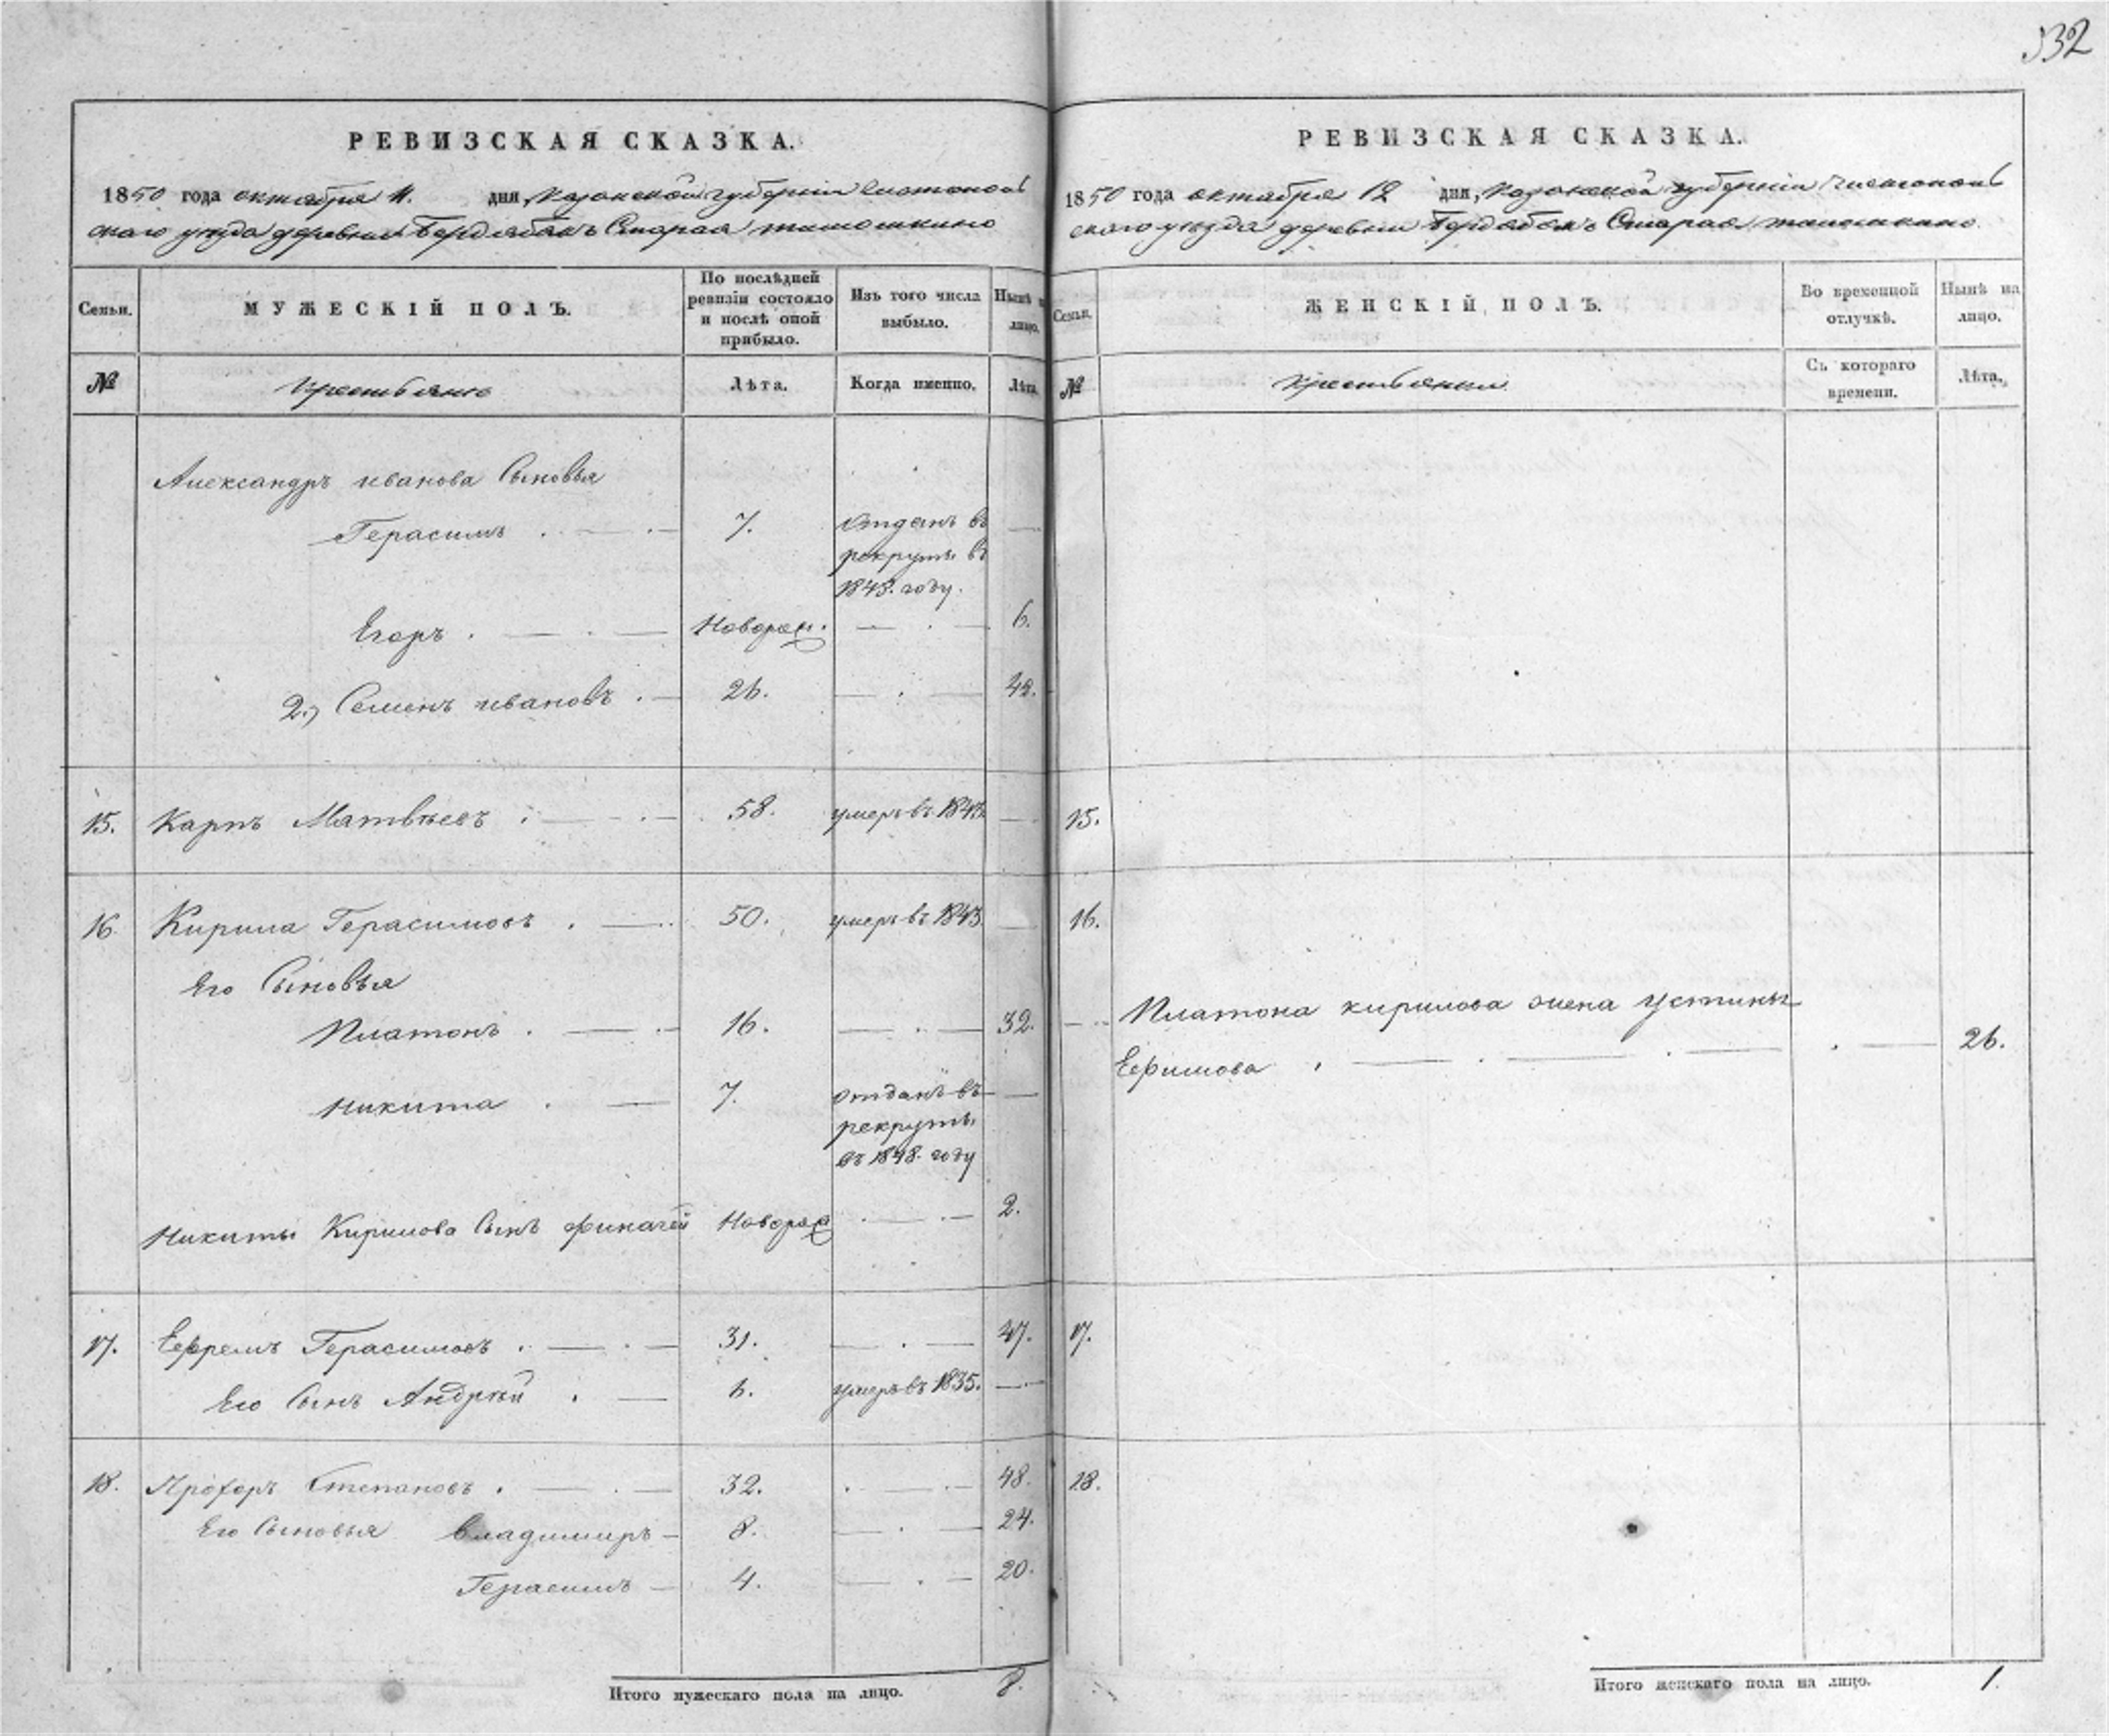 332
РЕВИЗСКАЯ СКАЗКА.
1850 года октября 11. дня, Казанской губернии Чистополь
скаго уезда деревни Бердебякъ Старая тимошкино
Семьи.
МУЖЕСКІЙ ПОЛЪ.
По послѣдней ревизіи состояло и послѣ оной прибыло.
Изъ того числа выбыло.
Нынѣ на лицо.
№
Крестьяне
Лѣта.
Когда именно.
Лѣта.
Александръ иванова Сыновья
Герасимъ 7. Отданъ въ
рекруты въ
1843. году.
Егоръ Новорож. 6.
2., Семенъ ивановъ 26. 42.
15. Карпъ Матвѣевъ 58. умеръ въ 1843.
16 Кирила Герасимовъ 50. умеръ въ 1843.
Его Сыновья
Платонъ 16. 32.
Никита 7. отданъ въ
рекруты
въ 1848. году
Никиты Кирилова Сынъ Новорож 2.
17. Ефремъ Герасимовъ 31. 47.
Его Сынъ Андрѣй 6. умеръ въ 1835.
18. Прохоръ Степановъ 32. 48.
Его Сыновья владимиръ 8. 24.
Герасимъ 4. 20.
Итого мужескаго пола на лицо. 8.
РЕВИЗСКАЯ СКАЗКА.
1850 года октября 12 дня, Казанской губерніи Чистополь
скаго уезда деревни Бердебякъ Старая тимошкино
Семьи.
ЖЕНСКІЙ ПОЛЪ.
Во временной отлучкѣ.
Нынѣ на лицо.
№
Крестьянки
Съ котораго времени.
Лѣта.
15.
16.
Платона кирилова жена Устинья
Ефимова 26.
17.
18.
Итого женскаго пола на лицо. 1.